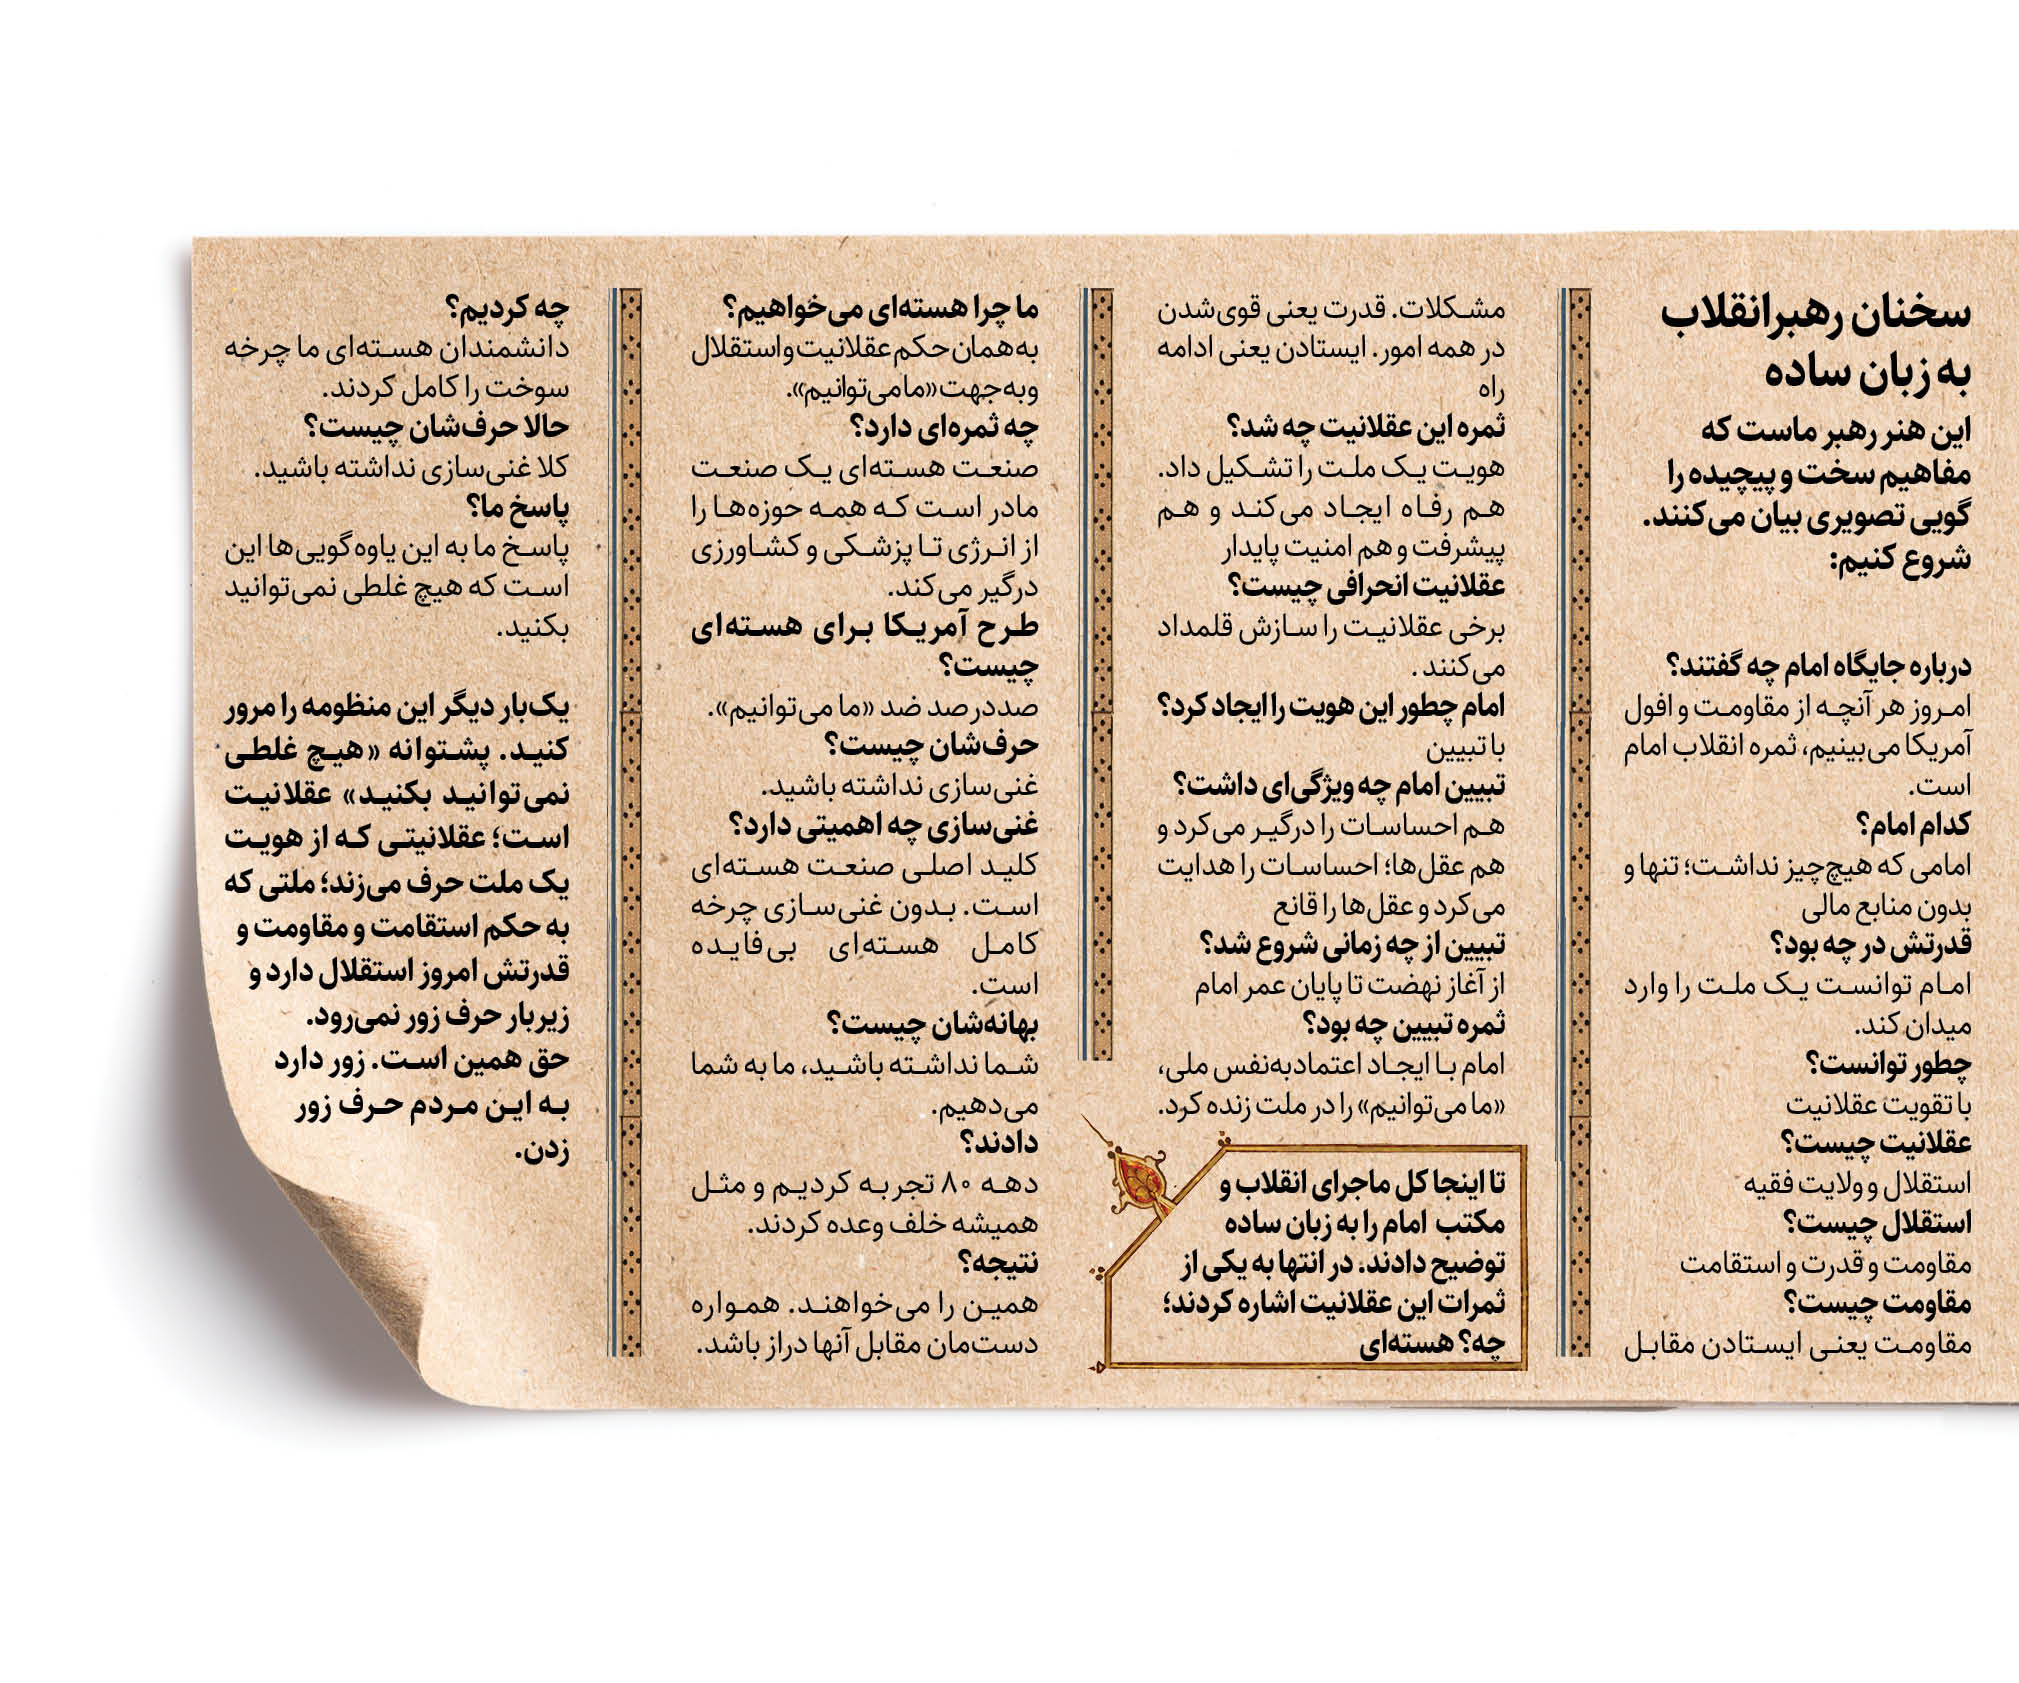 سخنان رهبرانقلاب
به زبان ساده
این هنر رهبر ماست که
مفاهیم سخت و پیچیده را
گویی تصویری بیان می‌کنند.
شروع کنیم:
درباره جایگاه امام چه گفتند؟
امروز هر آنچه از مقاومت و افول
آمریکا می‌بینیم، ثمره انقلاب امام
است.
کدام امام؟
امامی که هیچ‌چیز نداشت؛ تنها و
بدون منابع مالی
قدرتش در چه بود؟
امام توانست یک ملت را وارد
میدان کند.
چطور توانست؟
با تقویت عقلانیت
عقلانیت چیست؟
استقلال و ولایت فقیه
استقلال چیست؟
مقاومت و قدرت و استقامت
مقاومت چیست؟
مقاومت یعنی ایستادن مقابل
مشکلات. قدرت یعنی قوی‌شدن
در همه امور. ایستادن یعنی ادامه
راه
ثمره این عقلانیت چه شد؟
هویت یک ملت را تشکیل داد.
هم رفاه ایجاد می‌کند و هم
پیشرفت و هم امنیت پایدار
عقلانیت انحرافی چیست؟
برخی عقلانیت را سازش قلمداد
می‌کنند .
امام چطور این هویت را ایجاد کرد؟
با تبیین
تبیین امام چه ویژگی‌ای داشت؟
هم احساسات را درگیر می‌کرد و
هم عقل‌ها؛ احساسات را هدایت
می‌کرد و عقل‌ها را قانع
تبیین از چه زمانی شروع شد؟
از آغاز نهضت تا پایان عمر امام
ثمره تبیین چه بود؟
امام با ایجاد اعتمادبه‌نفس ملی،
«ما می‌توانیم» را در ملت زنده کرد.
تا اینجا کل ماجرای انقلاب و
مکتب امام را به زبان ساده
توضیح دادند. در انتها به یکی از
ثمرات این عقلانیت اشاره کردند؛
چه؟ هسته‌ای
ما چرا هسته‌ای می‌خواهیم؟
به‌همان حکم عقلانیت و استقلال
و به‌جهت «ما می‌توانیم».
چه ثمره‌ای دارد؟
صنعت هسته‌ای یک صنعت
مادر است که همه حوزه‌ها را
از انرژی تا پزشکی و کشاورزی
درگیر می‌کند.
طرح آمریکا برای هسته‌ای
چیست؟
صددرصد ضد «ما می‌توانیم».
حرف‌شان چیست؟
غنی‌سازی نداشته باشید.
غنی‌سازی چه اهمیتی دارد؟
کلید اصلی صنعت هسته‌ای
است. بدون غنی‌سازی چرخه
کامل هسته‌ای بی‌فایده
است.
بهانه‌شان چیست؟
شما نداشته باشید، ما به شما
می‌دهیم.
دادند؟
دهه ۸۰ تجربه کردیم و مثل
همیشه خلف وعده کردند.
نتیجه؟
همین را می‌خواهند. همواره
دست‌مان مقابل آنها دراز باشد.
چه کردیم؟
دانشمندان هسته‌ای ما چرخه
سوخت را کامل کردند.
حالا حرف‌شان چیست؟
کلا غنی‌سازی نداشته باشید.
پاسخ ما؟
پاسخ ما به این یاوه‌گویی‌ها این
است که هیچ غلطی نمی‌توانید
بکنید.
یک‌بار دیگر این منظومه را مرور
کنید. پشتوانه «هیچ غلطی
نمی‌توانید بکنید» عقلانیت
است؛ عقلانیتی که از هویت
یک ملت حرف می‌زند؛ ملتی که
به حکم استقامت و مقاومت و
قدرتش امروز استقلال دارد و
زیربار حرف زور نمی‌رود.
حق همین است. زور دارد
به این مردم حرف زور
زدن.